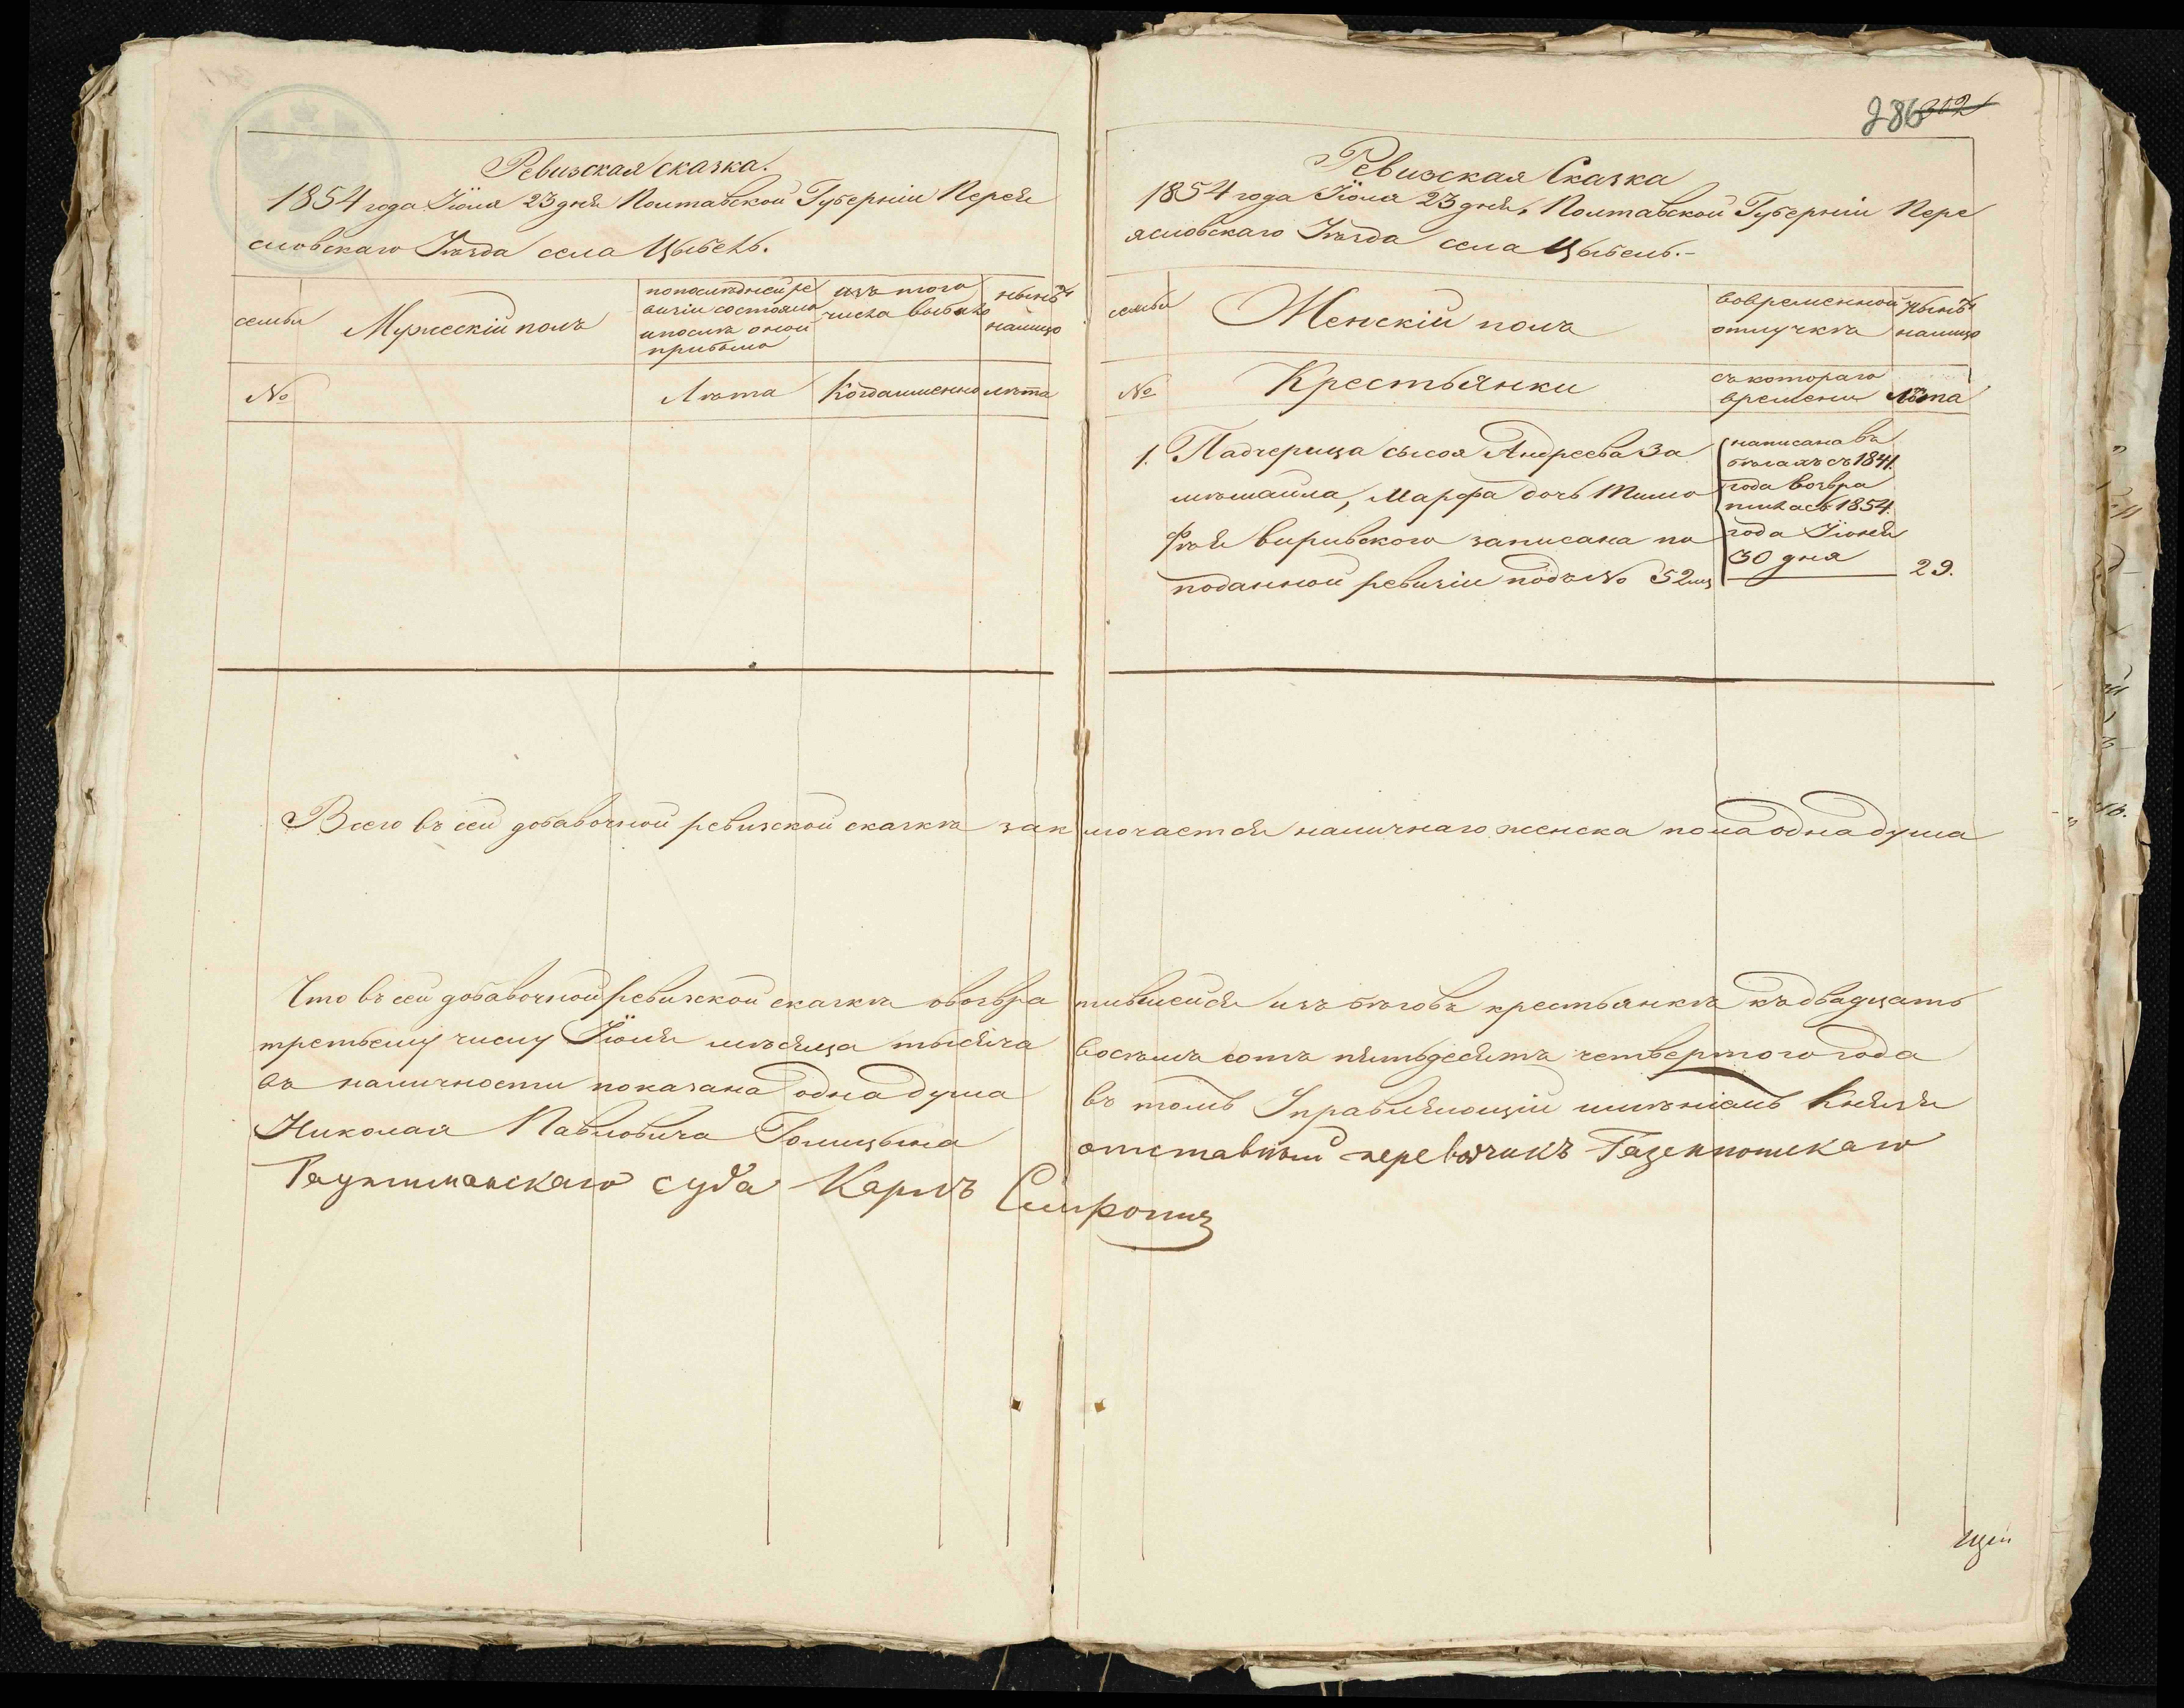 286 302
Ревизская сказка.
1854 года Іюля 23 дня Полтавской Губерніи Перея
словскаго Уѣзда села Цыбель.
семьи
Мужескій полъ
по послѣдней ре
визіи состояло
и послѣ оной
прибыло
изъ того
числа выбыло
нынѣ
налицо
№
Лѣта
Когда именно
лѣта
Ревизская Сказка
1854 года Іюля 23 дня, Полтавской Губерніи Пере
ясловскаго Уѣзда села Цыбель.-
семьи
Женскій полъ
во временной
отлучкѣ
нынѣ
налицо
№
Крестьянки
съ котораго
времени
Лѣта
1. Падчерица сысоя Андреева За
мѣшайла, Марфа дочь Тимо
фѣя виривского записана по
поданной ревизіи подъ № 52мъ
написана въ
бѣгахъ съ 1841.
года возвра
тилась 1854.
года Іюня
30 дня
29.
Всего въ сей добавочной ревизской сказкѣ заключается наличнаго женска пола одна душа
Что въ сей добавочной ревизской сказкѣ о возвратившейся изъ бѣговъ крестьянкѣ къ двадцать
третьему числу Іюля мѣсяца тысяча восѣмъ сотъ пятьдесятъ четвертого года
въ наличности показана одна душа въ томъ Управляющій имѣніемъ Князя
Николая Павловича Голицына отставный переводчикъ Газенпотскаго
Гауптманскаго суда Карлъ
щій